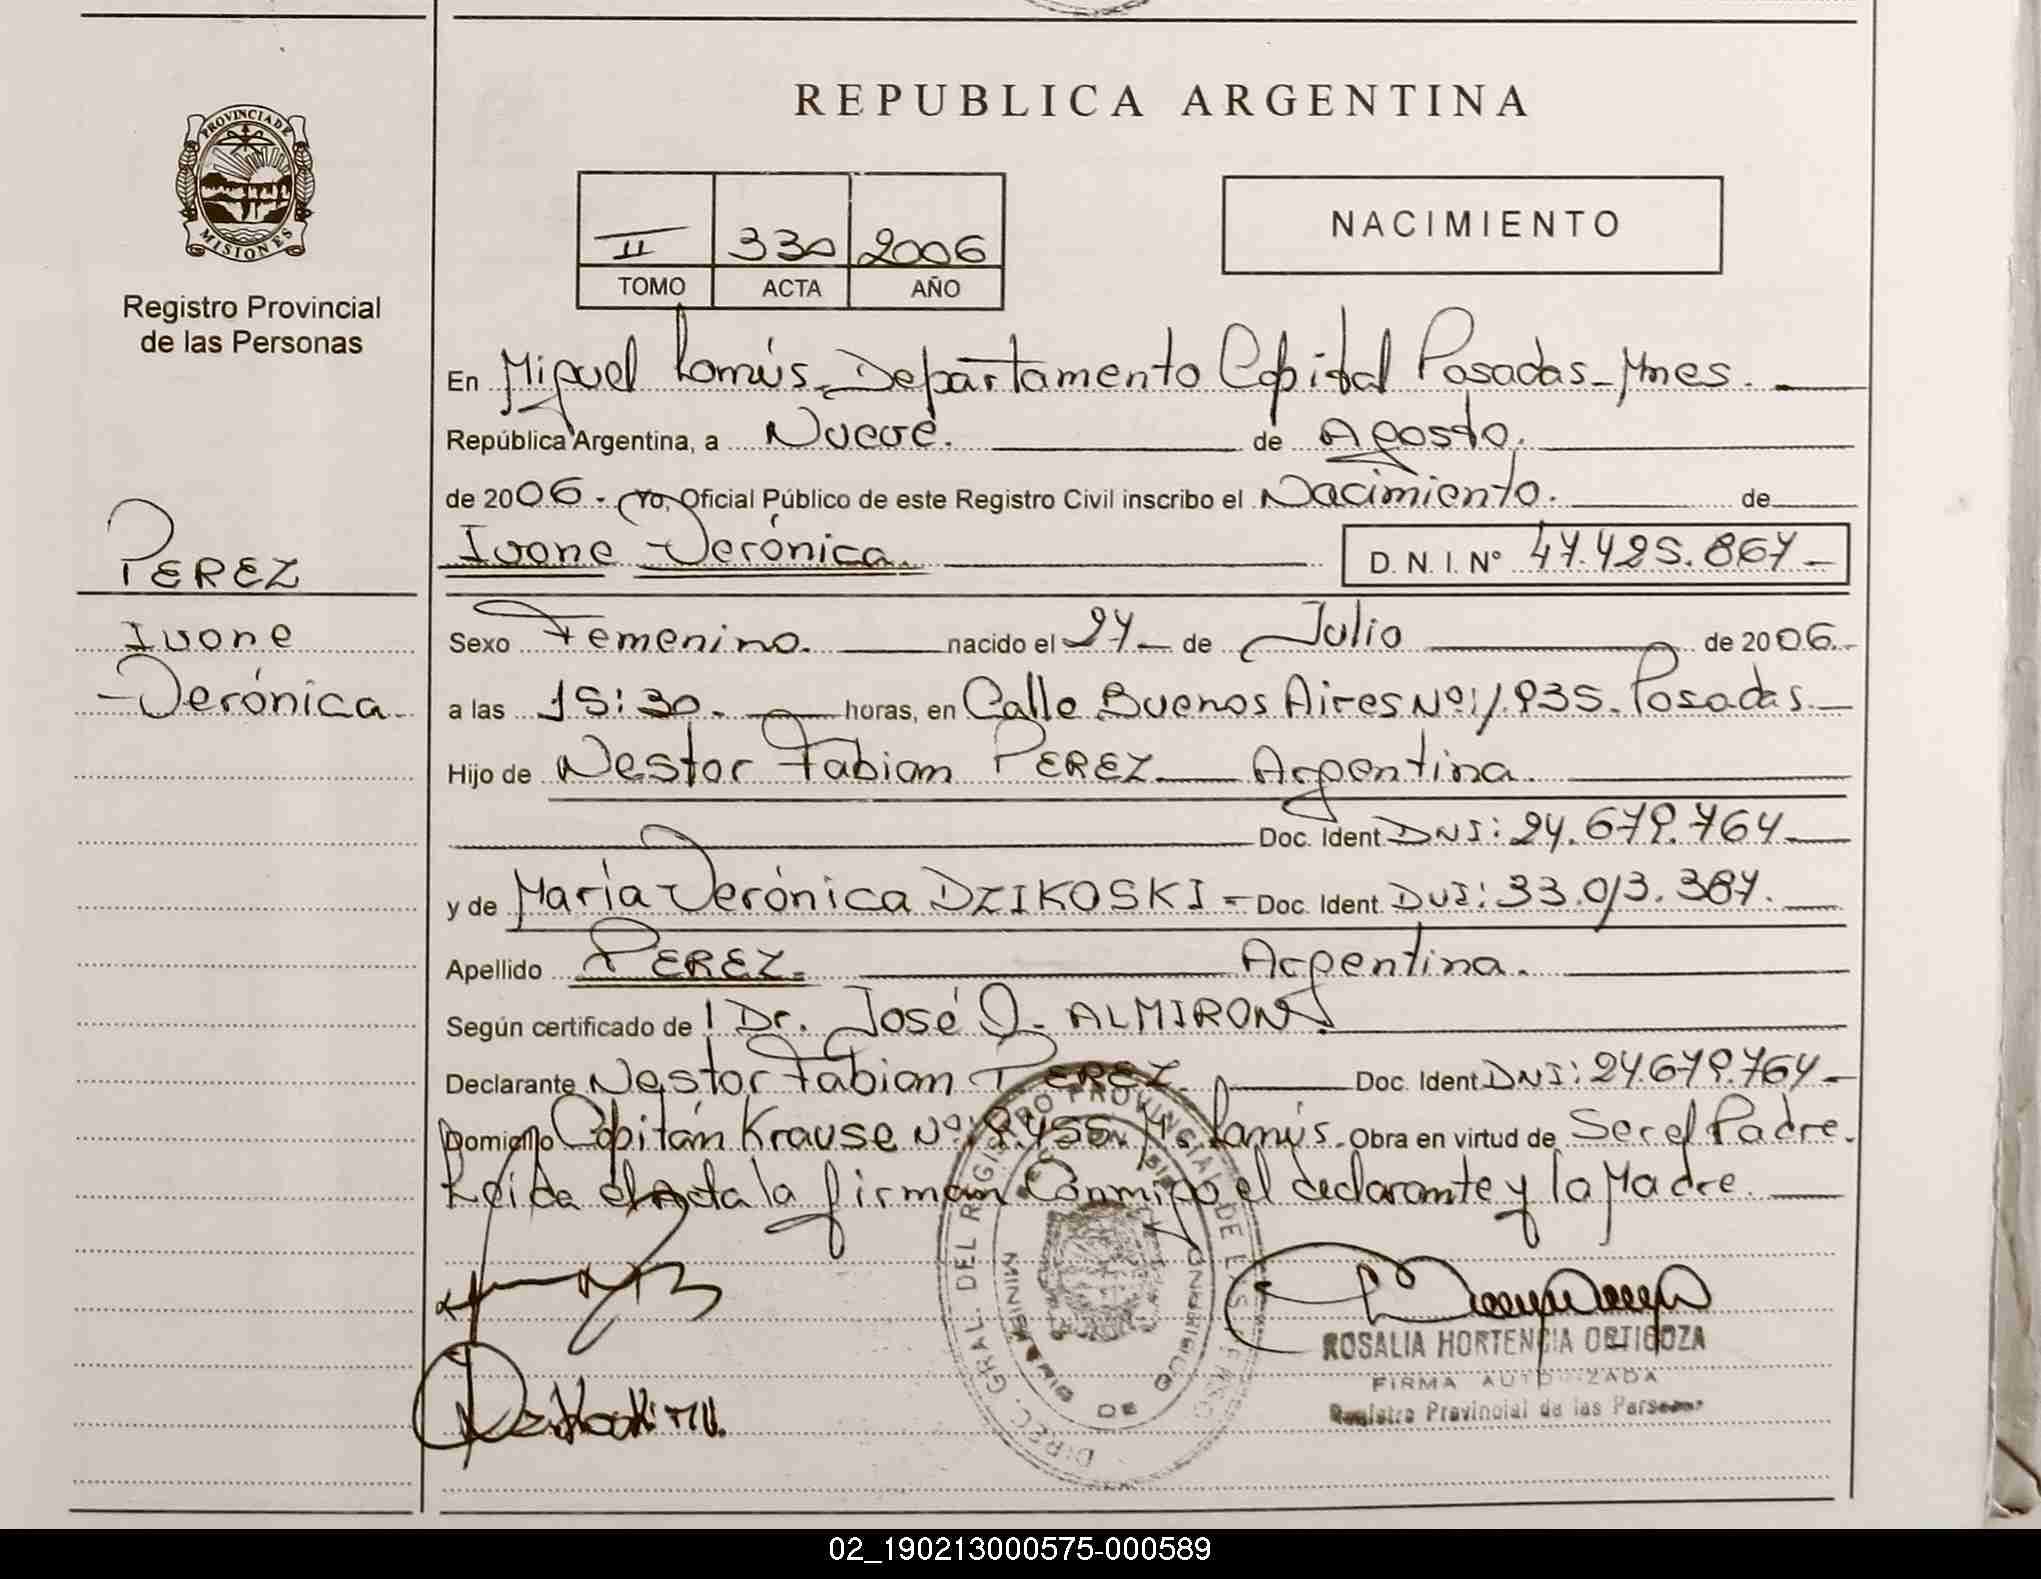 REPUBLICA ARGENTINA
PROVINCIA DE
MISIONES
Registro Provincial
de las Personas
II 330 2006
TOMO ACTA AÑO
NACIMIENTO
PEREZ
Ivone
Verónica
En Miguel Lanús - Departamento Capital Posadas - Mnes.
República Argentina, a Nueve. de Agosto.
de 2006. Yo, Oficial Público de este Registro Civil inscribo el Nacimiento. de
Ivone Verónica. D. N. I. Nº 47.425.867
Sexo Femenino. nacido el 27 de Julio de 2006.
a las 15:30. horas, en Calle Buenos Aires Nº: 1.935. Posadas.
Hijo de Nestor Fabian PEREZ Argentina.
Doc. Ident. DNI: 24.679.764
y de María Verónica DZIKOSKI - Doc. Ident. DNI: 33.013.387.
Apellido PEREZ. Argentina.
Según certificado de l Dr. José O. ALMIRON
Declarante Nestor Fabian PEREZ. Doc. Ident DNI: 24.679.764
Domicilio Capitán Krause Nº: 9.455. M. Lanús. Obra en virtud de Ser el Padre.
Leida el Acta la firman Conmigo el declarante y la Madre.
Dzikoski M V.
ROSALIA HORTENCIA ORTIGOZA
FIRMA AUTORIZADA
Registro Provincial de las Personas
DIREC. GRAL. DEL REGISTRO PROVINCIAL DE LAS PERSO
02_190213000575-000589